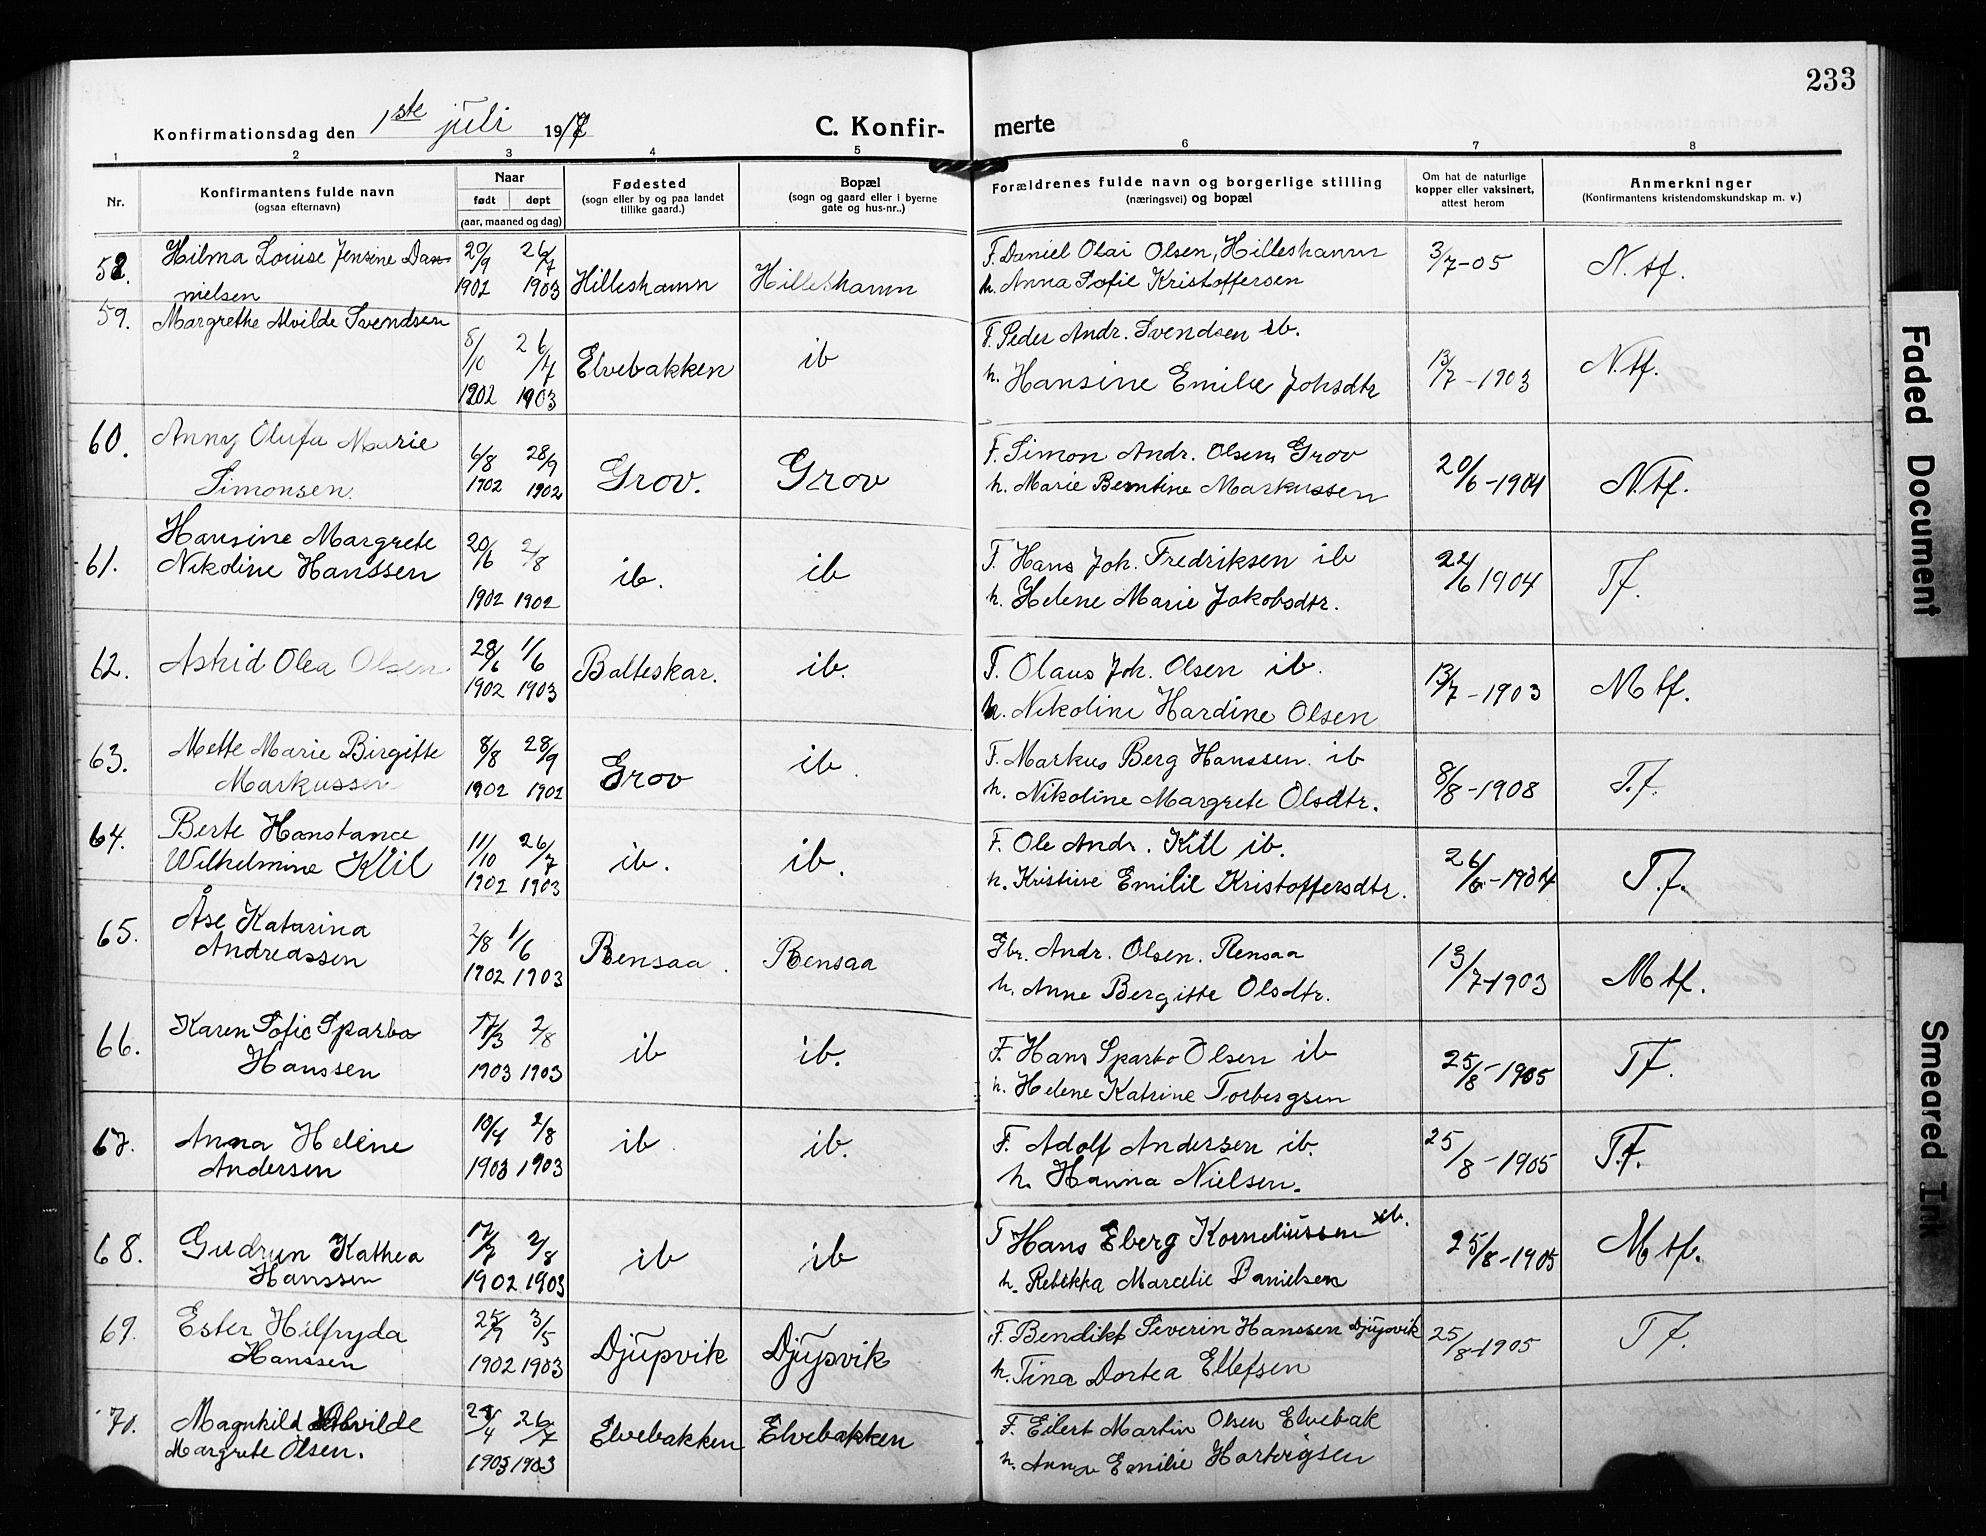 233
Konfirmationsdag den 1ste juli 1917
C. Konfir- merte
1 2 3 4 5 6 7 8
Nr.
Konfirmantens fulde navn
(ogsaa efternavn)
Naar
født døpt
(aar, maaned og dag)
Fødested
(sogn eller by og paa landet
tillike gaard.)
Bopæl
(sogn og gaard eller i byerne
gate og hus-nr..)
Forældrenes fulde navn og borgerlige stilling
(næringsvei) og bopæl
Om hat de naturlige
kopper eller vaksinert,
attest herom
Anmerkninger
(Konfirmantens kristendomskundskap m. v.)
58. Hilma Louise Jensine Dan-
nielsen
20/9 26/7
1902 1903
Hilleshamn Hilleshamn
F. Daniel Olai Olsen, Hilleshamn
h. Anna Sofie Kristoffersen
3/7-05 N. tf.
59. Margrethe Alvilde Svendsen
8/10 26/7
1902 1903
Elvebakken ib
F. Peder Andr. Svendsen ib.
h. Hansine Emilie Johsdtr
13/7-1903 N. tf.
60. Anny Olufa Marie
Simonsen.
6/8 28/9
1902 1902
Grov. Grov
F. Simon Andr. Olsen, Grov
h. Marie Berntine Markussen
20/6-1904 N. tf.
61. Hansine Margrete
Nikoline Hanssen
20/6 2/8
1902 1902
ib. ib
F. Hans Joh. Fredriksen ib
h. Helene Marie Jakobsdtr.
22/6 1904 Tf.
62. Astrid Olea Olsen
28/6 1/6
1902 1903
Balteskar. ib.
F. Olaus Joh. Olsen ib.
h. Nikoline Hardine Olsen
13/7-1903 M tf.
63. Mette Marie Birgitte
Markussen
8/8 28/9
1902 1902
Grov ib.
F. Markus Berg Hanssen. ib
h. Nikoline Margrete Olsdtr.
8/8-1908 T.f.
64. Berte Konstance
Wilhelmine Kiil
11/10 26/7
1902 1903
ib. ib.
F. Ole Andr. Kiil ib.
h. Kristine Emilie Kristoffersdtr.
26/6-1904 T.f.
65. Åse Katarina
Andreassen
2/8 1/6
1902 1903
Rensaa. Rensaa
Gbr. Andr. Olsen. Rensaa
h. Anne Bergitte Olsdtr.
13/7-1903 M tf.
66. Karen Sofie Sparbo
Hanssen
17/3 2/8
1903 1903
ib ib.
F. Hans Sparbo Olsen ib
h. Helene Katrine Torbergsen
25/8-1905 Tf.
67. Anna Helene
Andersen
10/4 2/8
1903 1903
ib ib.
F. Adolf Andersen ib.
h. Hanna Nielsen.
25/8-1905 T.f.
68. Gudrun Kathea
Hanssen
17/7 2/8
1902 1903
ib ib
F Hans Eberg Korneliussen ib.
h. Rebekka Marcelie Danielsen
25/8-1905 M tf.
69. Ester Helfryda
Hanssen
25/9 3/5
1902 1903
Djupvik Djupvik
F. Bendikt Severin Hanssen Djupvik
h. Tina Dortea Ellefsen
25/8-1905 Tf.
70. Magnhild Alvilde
Margrete Olsen.
26/7
1903 1903
Elvebakken Elvebakken
F. Eilert Martin Olsen Elvebak
h. Anna Emilie Hartvigsen
Faded Document
Smeared Ink